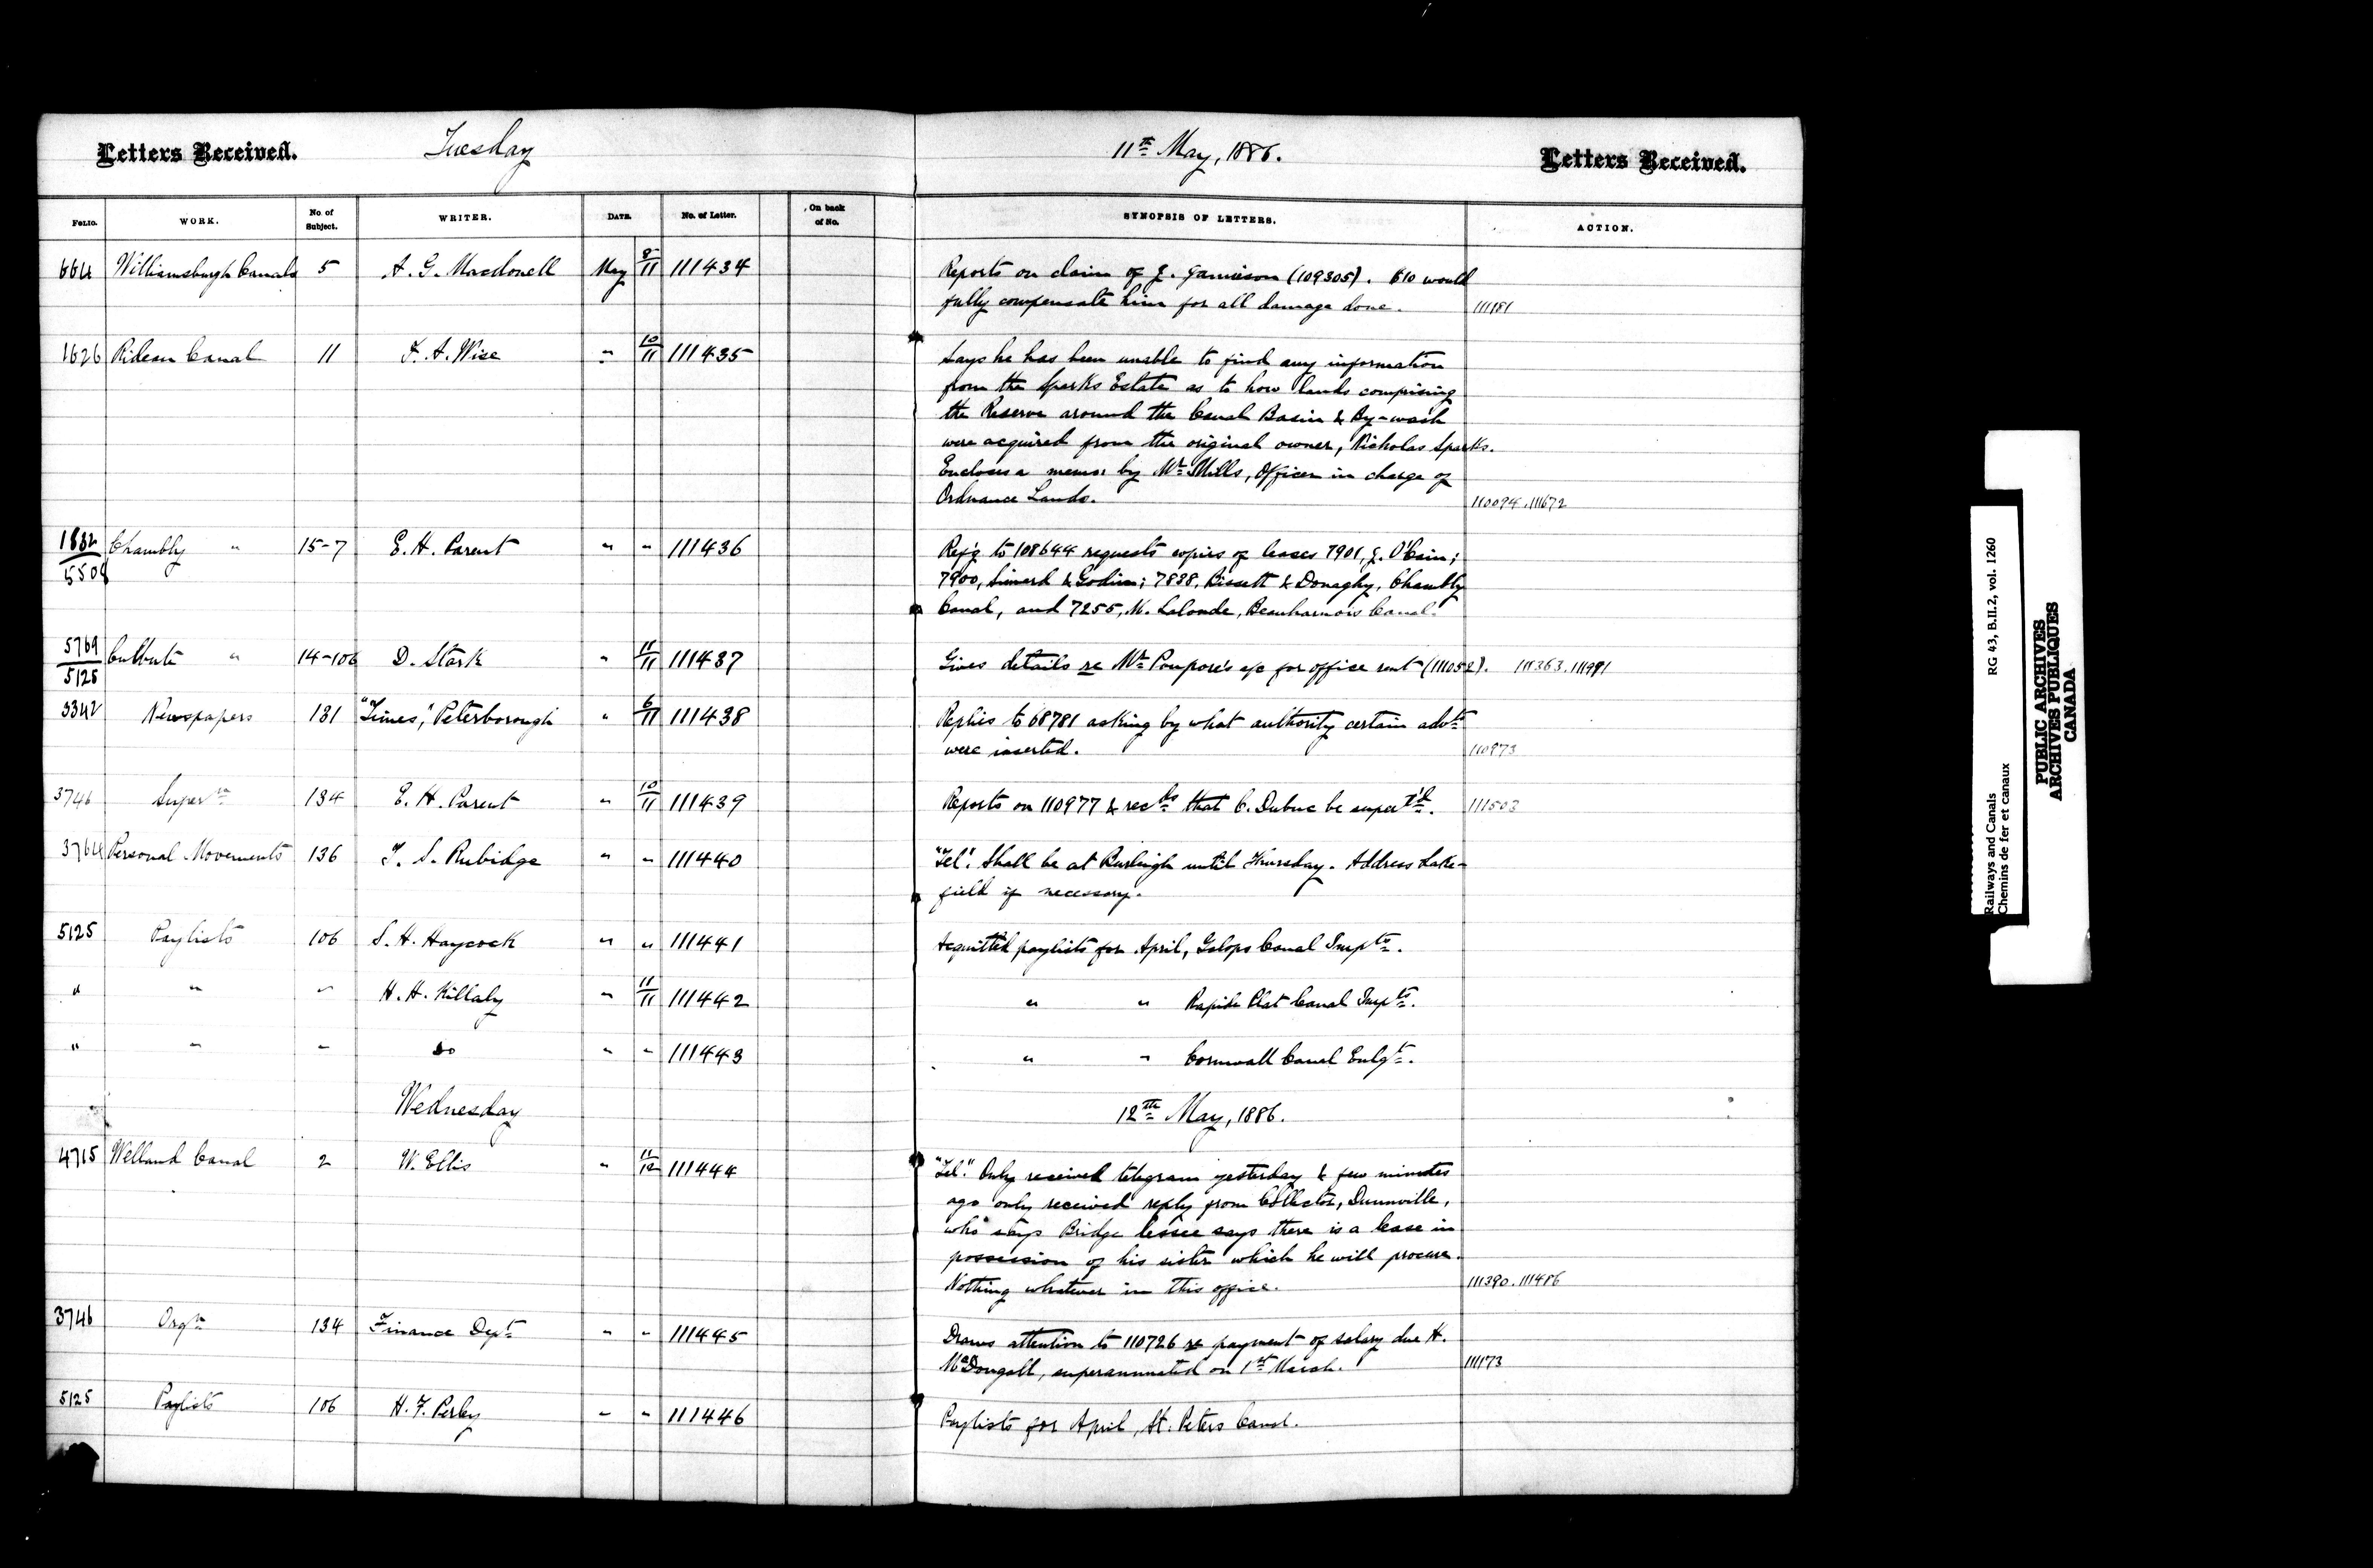 Letters Received. Tuesday 11th May, 1886. Letters Received.
FOLIO. WORK. No. of Subject. WRITER. DATE. No. of Letter. On back of No. SYNOPSIS OF LETTERS. ACTION.
664 Williamsburgh Canals 5 A. G. Macdonell May 8/11 111434 Reports on claim of J. Jamieson (109305). $10 would
fully compensate him for all damage done. 111181
1626 Rideau Canal 11 F. A. Wise " 10/11 111435 Says he has been unable to find any information
from the Sparks Estate as to how lands comprising
the Reserve around the Canal Basin & By-wash
were acquired from the original owner, Nicholas Sparks.
Encloses a memo: by Mr. Mills, Officer in charge of
Ordnance Lands. 110094. 111672
1832/5508 Chambly " 15-7 E. H. Parent " " 111436 Ref'g to 108644 requests copies of leases 7901, J. O'Cain;
7900, Simard & Godin; 7838, Bissett & Donaghy, Chambly
Canal, and 7255, M. Lalonde, Beauharnois Canal.
5769/5125 Culbute " 14-106 D. Stark " 11/11 111437 Gives details re Mr. Poupore's a/c for office rent (111052). 111363. 111991
3342 Newspapers 131 "Times," Peterborough " 6/11 111438 Replies to 68781 asking by what authority certain advts
were inserted. 110973
3746 Superon 134 E. H. Parent " 10/11 111439 Reports on 110977 & recds that C. Dubuc be supert'd. 111503
3764 Personal Movements 136 T. S. Rubidge " " 111440 "Tel". Shall be at Burleigh until Thursday. Address Lake-
field if necessary.
5125 Paylists 106 S. H. Haycock " " 111441 Acquitted paylists for April, Galops Canal Impts.
" " " H. H. Killaly " 11/11 111442 " " Rapide Plat Canal Impts.
" " " Do " " 111443 " " Cornwall Canal Enlgt.
Wednesday 12th May, 1886.
4715 Welland Canal 2 W. Ellis " 11/12 111444 "Tel." Only received telegram yesterday & few minutes
ago only received reply from Collector, Dunnville,
who says Bridge lessee says there is a lease in
possession of his sister which he will procure.
Nothing whatever in this office. 111390. 111486
3746 Orgn 134 Finance Dept " " 111445 Draws attention to 110726 re payment of salary due H.
McDougall, superannuated on 1st March. 111173
5125 Paylists 106 H. F. Perley " " 111446 Paylists for April, St. Peters Canal.
Railways and Canals RG 43, B.II.2, vol. 1260
Chemins de fer et canaux
PUBLIC ARCHIVES
ARCHIVES PUBLIQUES
CANADA